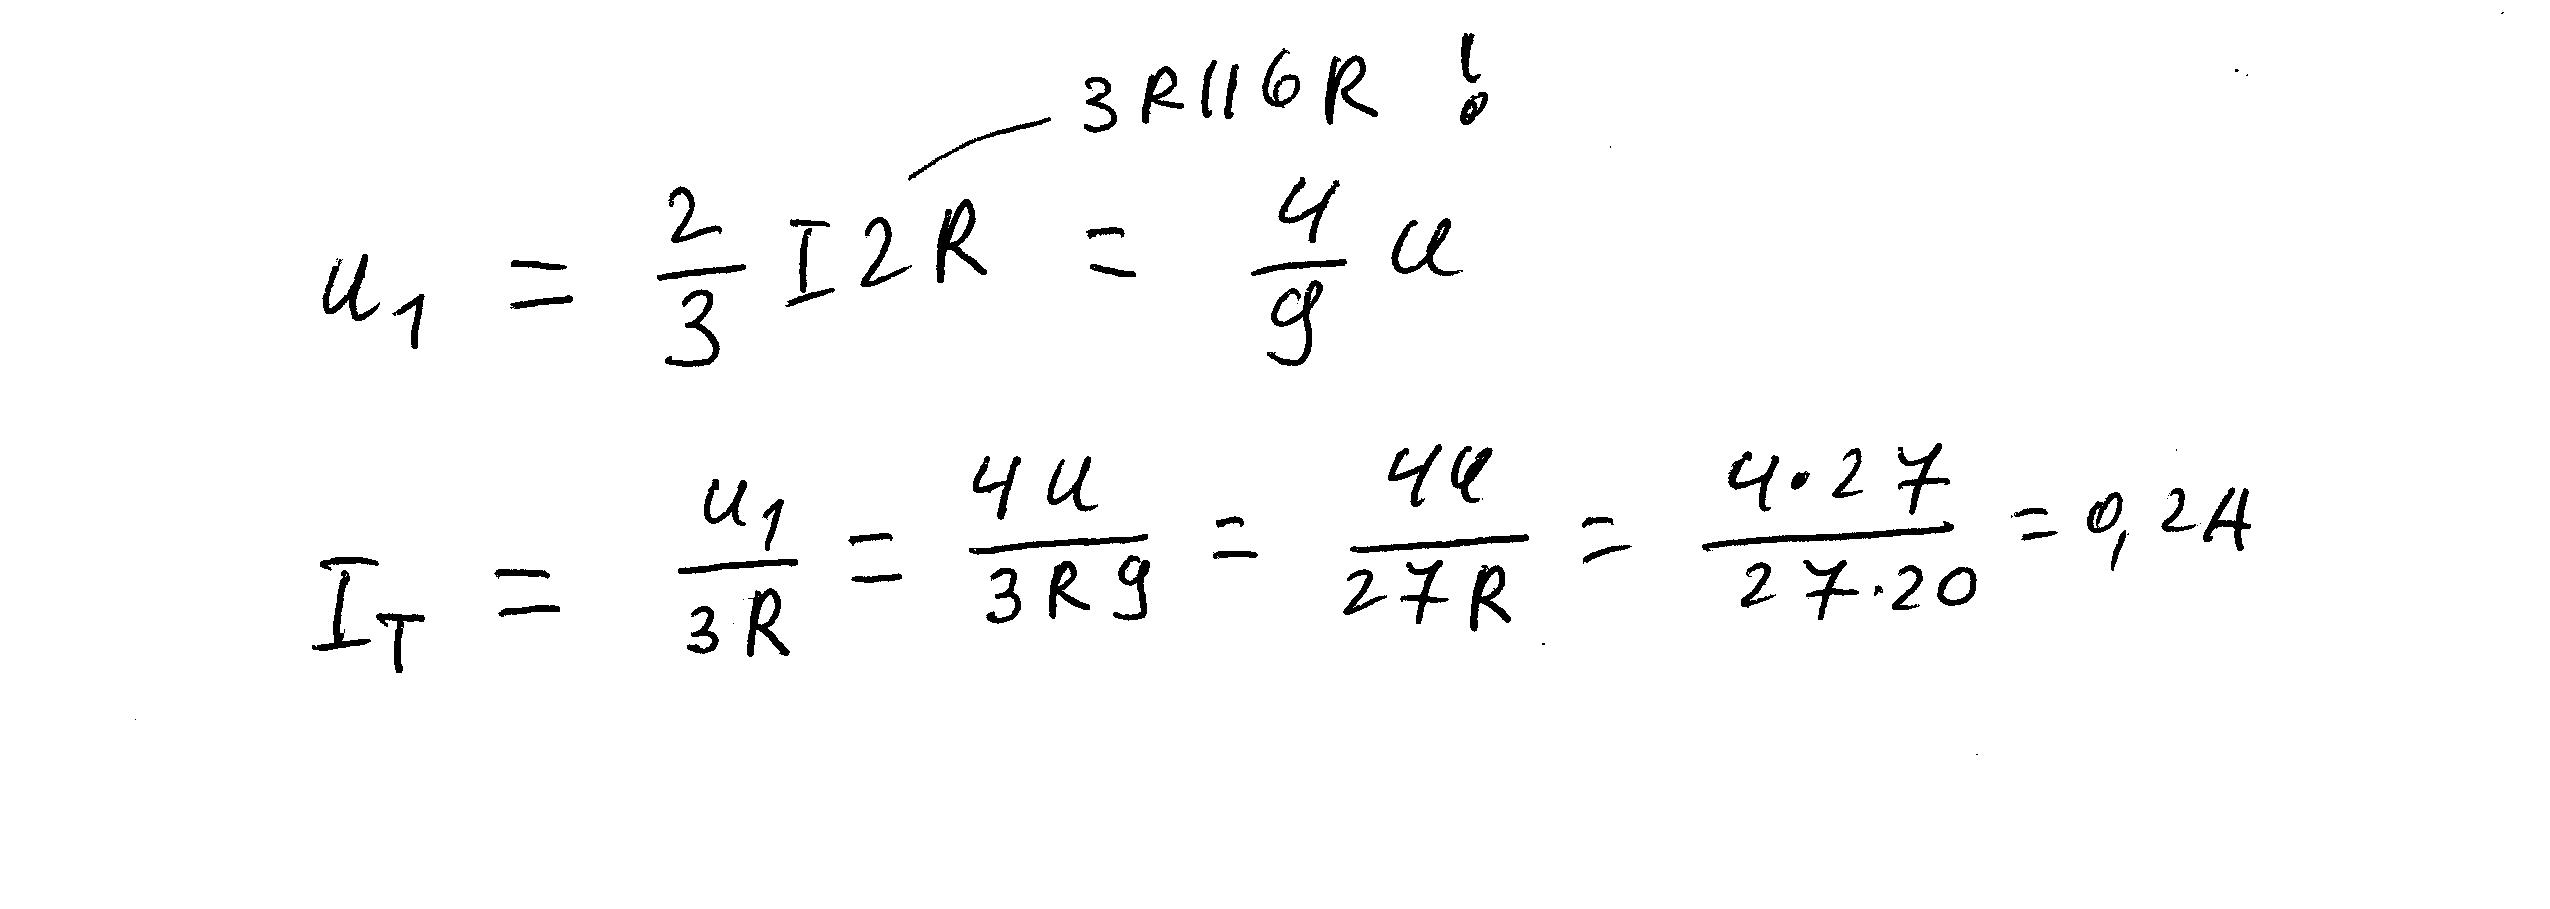 3R||6R !
u₁ = 2/3 I2R = 4/9 u
I_T = u₁/3R = 4u/3R9 = 4u/27R = 4·27/27·20 = 0,2A